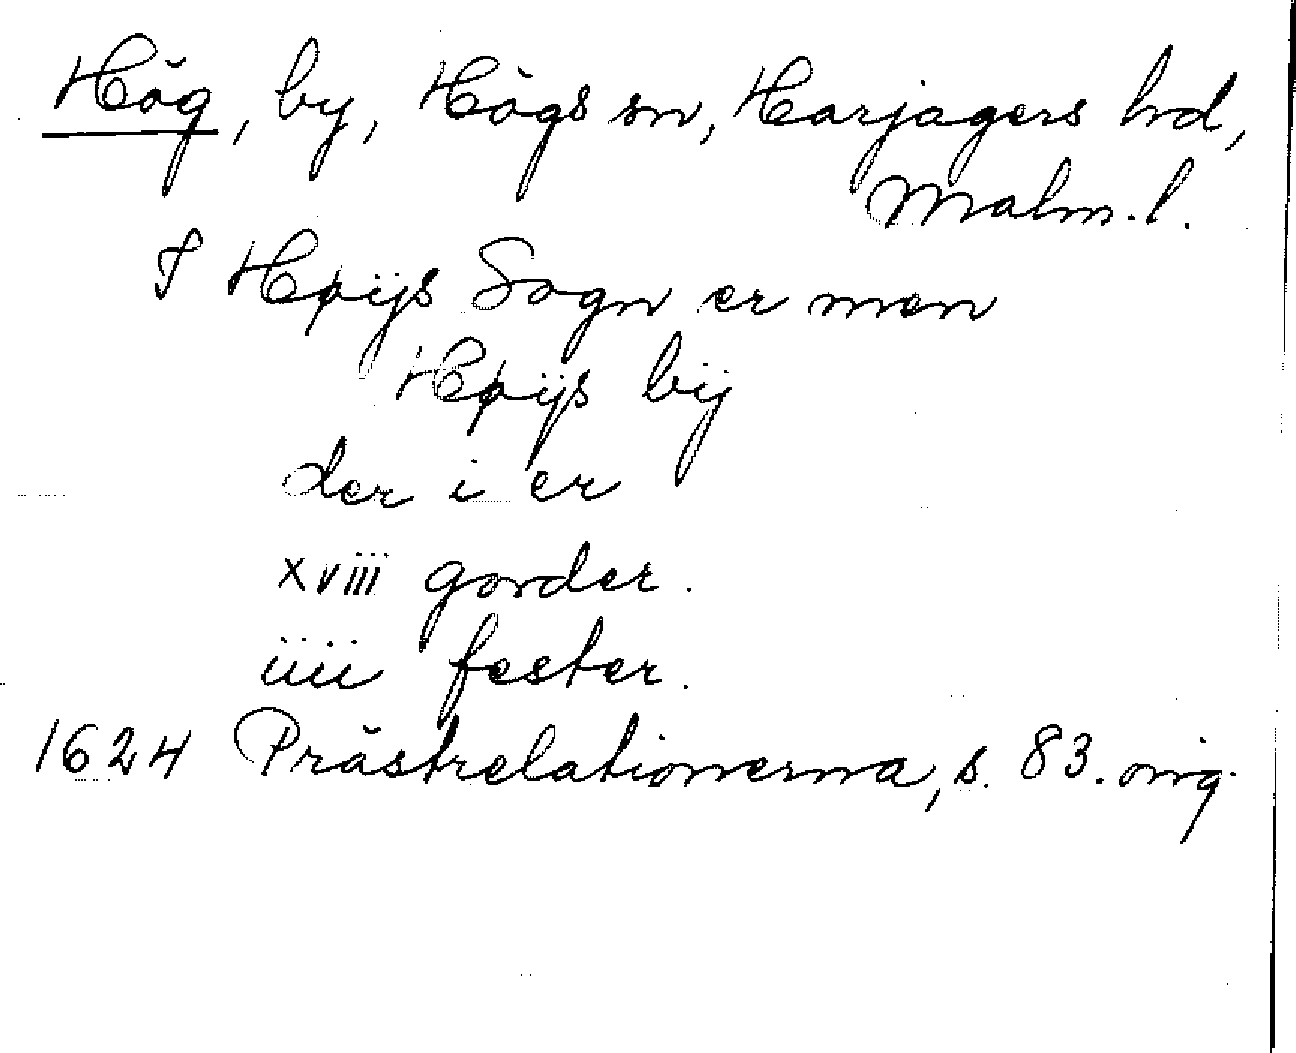 Hög, by, Högs sn, Harjagers hd,
Malm. l.
I Høijs Sogn er men
Høijs bÿ
der i er
xviii gorder.
iiii fester.
1624 Prästrelationerna, s. 83. orig.